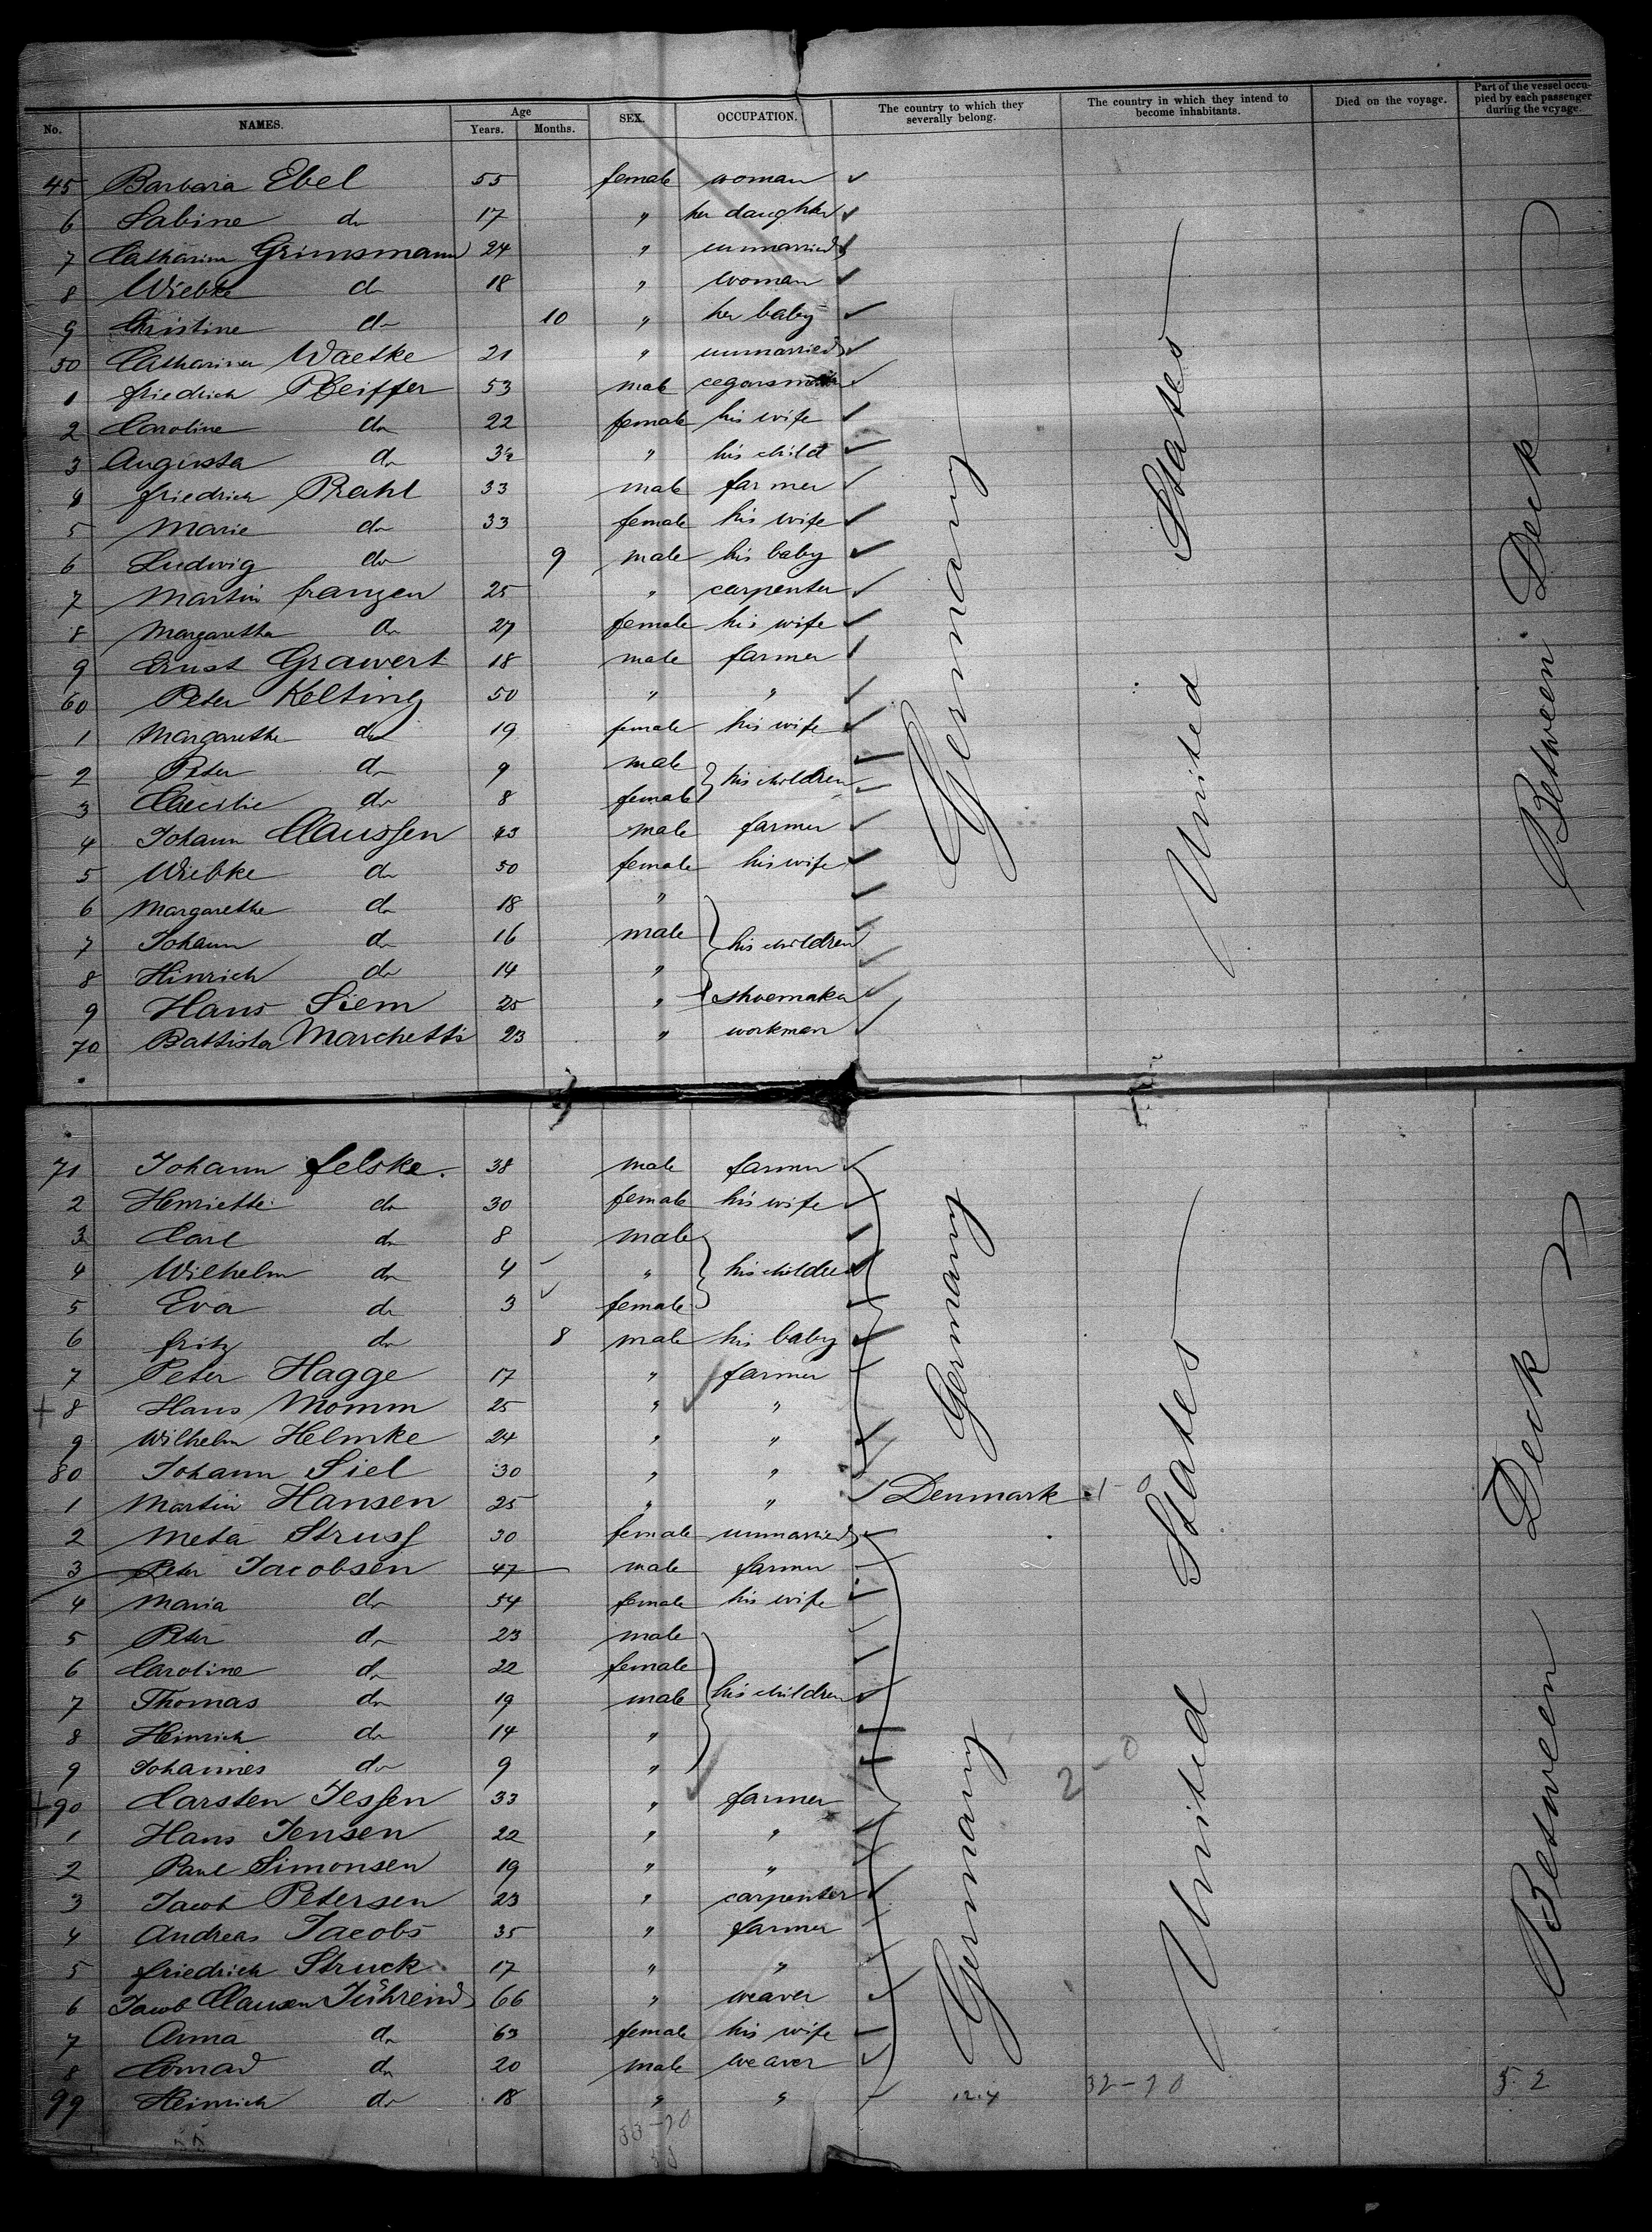 No. NAMES. Age Years. Months. SEX. OCCUPATION. The country to which they severally belong. The country in which they intend to become inhabitants. Died on the voyage. Part of the vessel occupied by each passenger during the voyage.
45 Barbara Ebel 55 female woman ✓
6 Sabine do 17 " her daughter ✓
7 Catharina Grimsmann 24 " unmarried ✓
8 Wiebke do 18 " woman ✓
9 Christine do 10 " her baby ✓
50 Catharina Waetke 21 " unmarried ✓
1 friedrich Pfeiffer 53 male ✓
2 Caroline do 22 female his wife ✓
3 Augusta do 3½ " his child ✓
4 friedrich Prahl 33 male farmer ✓
5 Marie do 33 female his wife ✓
6 Ludwig do 9 male his baby ✓
7 Martin franzen 25 " carpenter ✓
8 Margaretha do 27 female his wife ✓
9 Ernst Grawert 18 male farmer ✓
60 Peter Kelting 50 " " ✓
1 Margarethe do 19 female his wife ✓
2 Peter do 9 male his children ✓
3 Caecilie do 8 female ✓
4 Johann Claussen 43 male farmer ✓
5 Wiebke do 50 female his wife ✓
6 Margarethe do 18 " ✓
7 Johann do 16 male his children ✓
8 Hinrich do 14 " ✓
9 Hans Siem 25 " shoemaker ✓
70 Battista Marchetti 23 " workman ✓
Germany
United States
Between Deck
71 Johann felske. 38 male farmer ✓
2 Henriette do 30 female his wife ✓
3 Carl do 8 male ✓
4 Wilhelm do 4 " his children ✓
5 Eva do 3 female ✓
6 fritz do 8 male his baby ✓
7 Peter Hagge 17 " farmer ✓
+ 8 Hans Momm 25 " "
9 Wilhelm Helmke 24 " " ✓
80 Johann Siel 30 " " ✓
1 Martin Hansen 25 " " ✓ Denmark 1-0
2 Meta Struss 30 female unmarried ✓
3 Peter Jacobsen 47 male farmer
4 Maria do 54 female his wife ✓
5 Peter do 23 male
6 Caroline do 22 female ✓
7 Thomas do 19 male his children ✓
8 Heinrich do 14 " ✓
9 Johannes do 9 " ✓
+ 90 Carsten Jessen 33 " farmer
1 Hans Jensen 22 " " ✓
2 Paul Simonsen 19 " " ✓
3 Jacob Petersen 23 " carpenter ✓
4 Andreas Jacobs 35 " farmer ✓
5 friedrich Struck 17 " " ✓
6 Jacob Clausen 66 " weaver ✓
7 Anna do 63 female his wife ✓
8 Conrad do 20 male weaver ✓
99 Heinrich do 18 " " ✓
Germany
Germany
2-0
United States
Between Deck